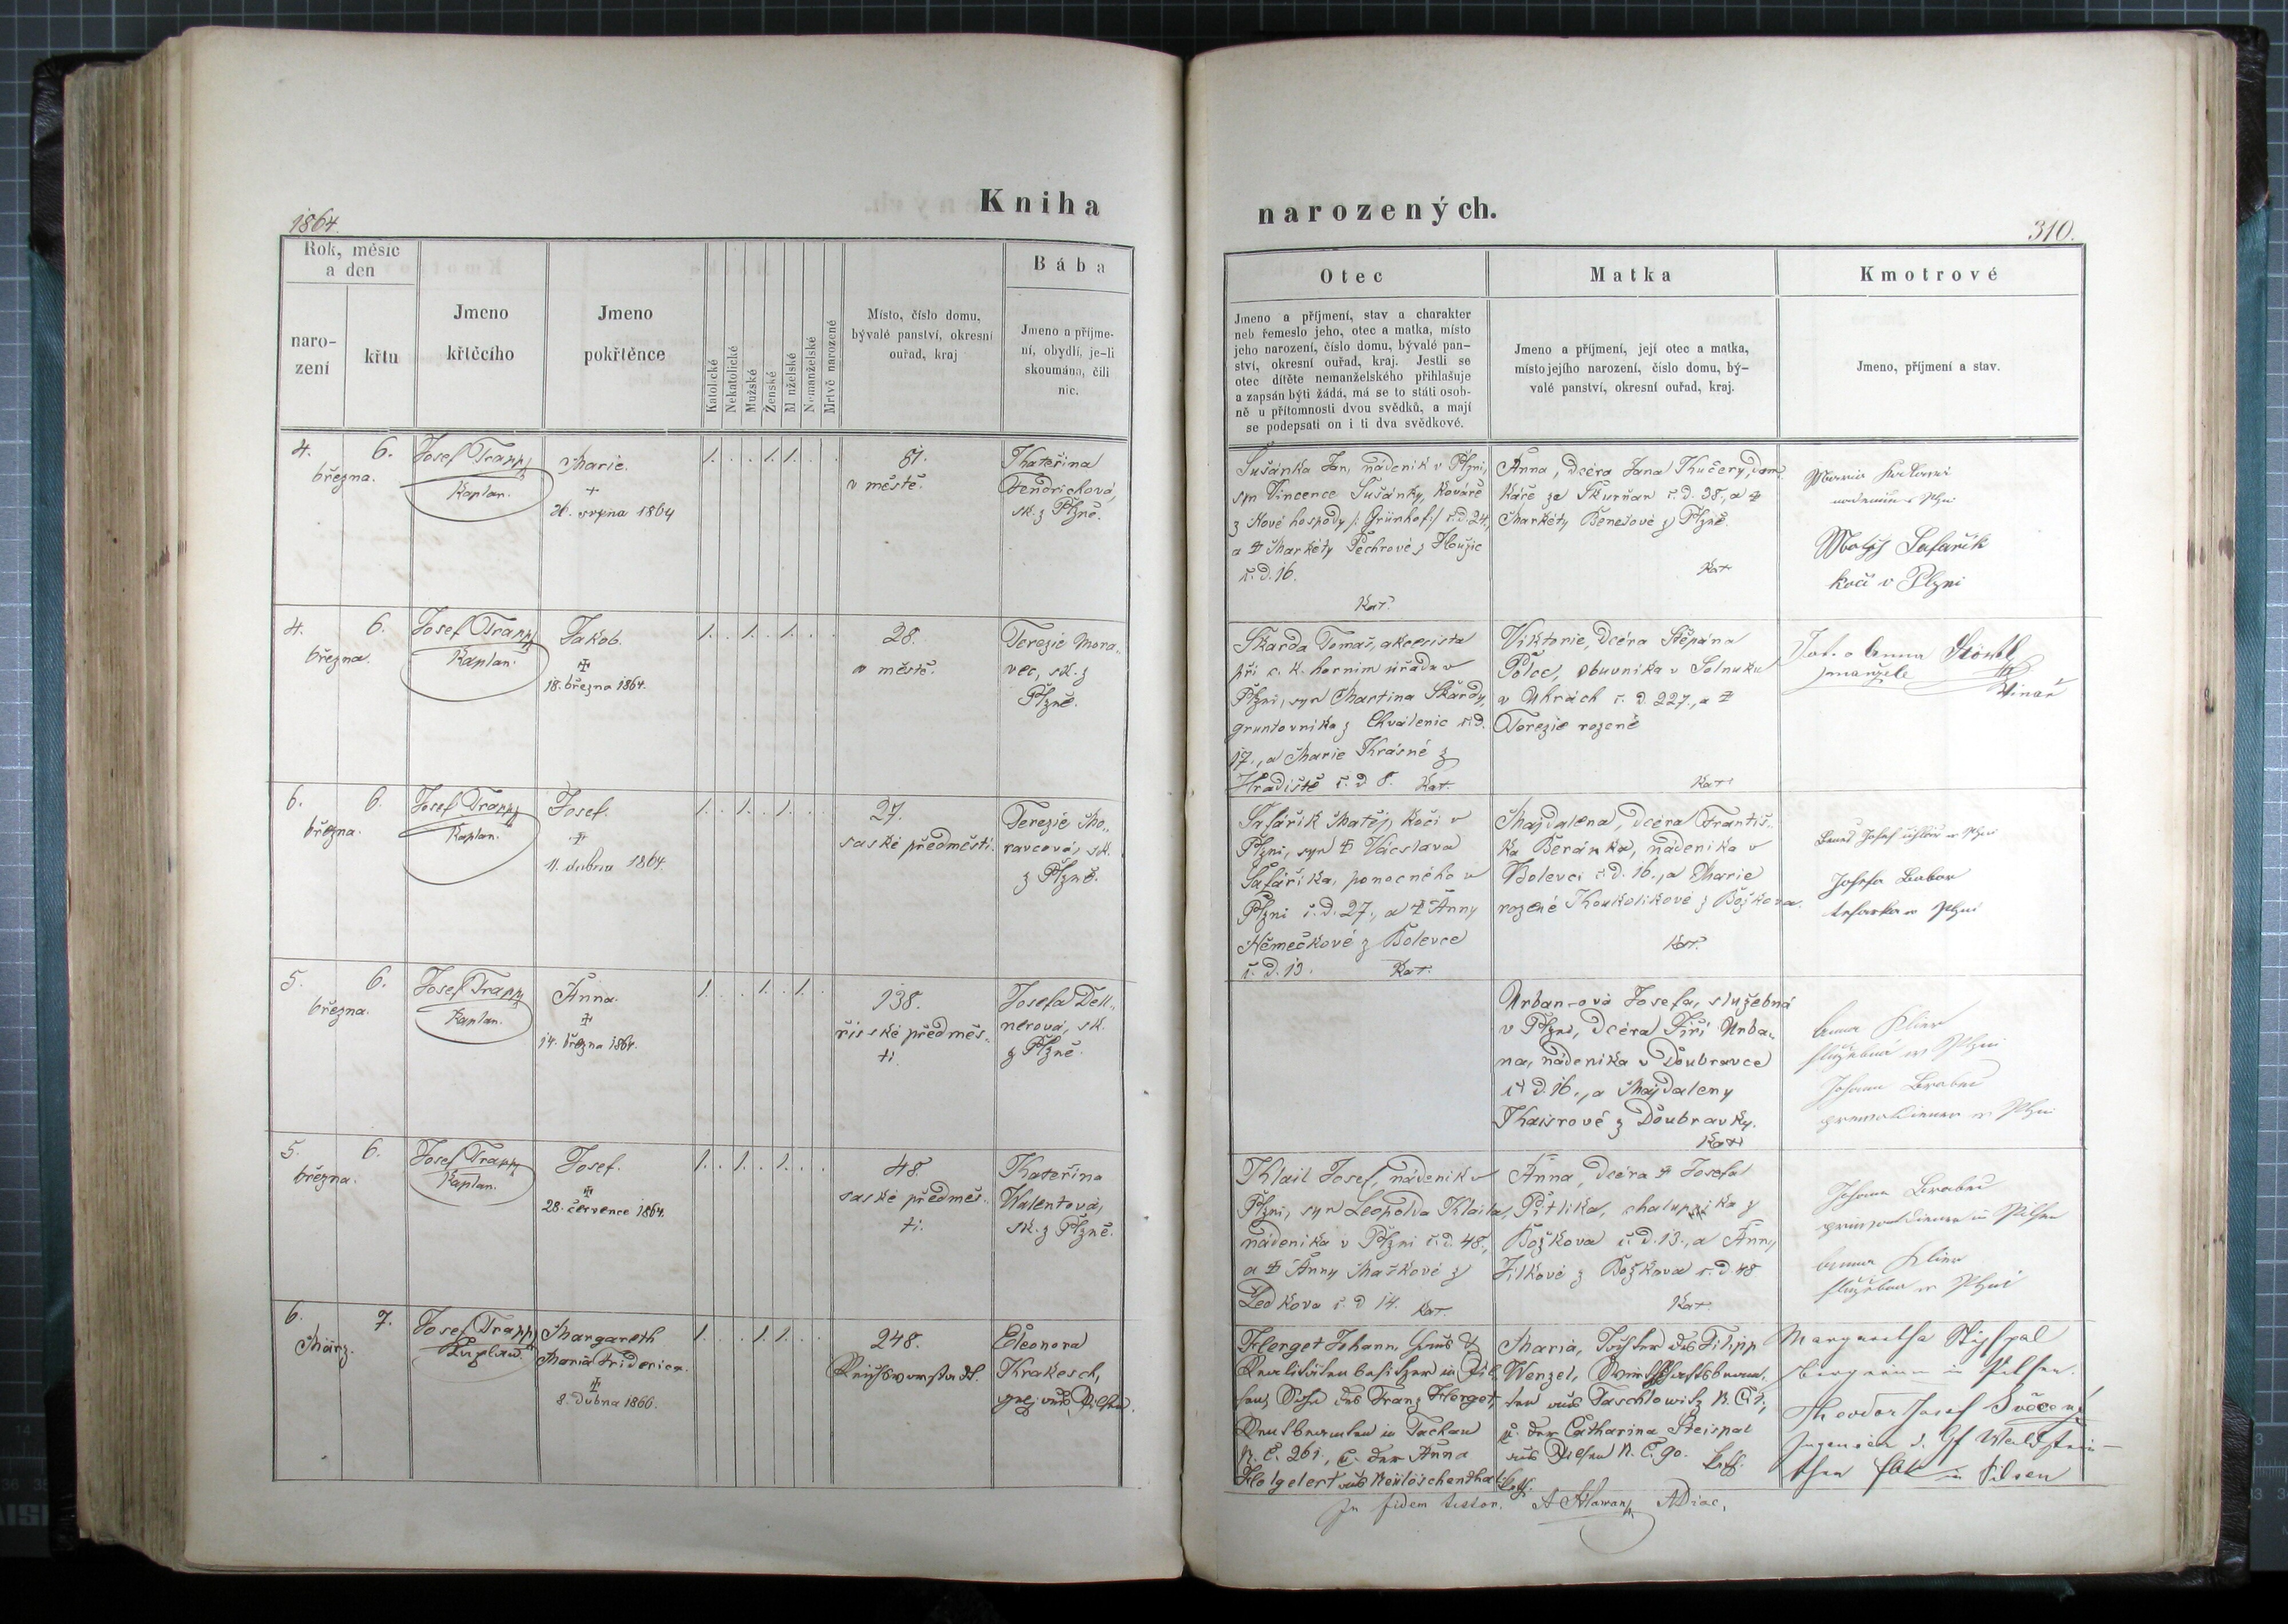 Kniha
1864.
Rok, měsíc
a den
naro-
zení
křtu
Jmeno
křtěcího
Jmeno
pokřtěnce
Katolické
Nekatolické
Mužské
Ženské
M nželské
Nemanželské
Mrtvě narozené
Místo, číslo domu,
bývalé panství, okresní
ouřad, kraj
Bába
Jmeno a příjme-
ní, obydlí, je-li
skoumána, čili
nic.
4. 6.
března.
Josef Trapp
Kaplan.
Marie.
+
26. srpna 1864
1. . . 1. 1. . .
81.
v městě.
Kateřina
Jendrichová,
sk. z Plzně.
4. 6.
března.
Josef Trapp
Kaplan.
Jakob.
18. března 1864.
1. . 1. . 1. . .
28.
v městě.
Terezie Mora„
vec, sk. z
Plzně.
6. 6.
března.
Josef Trapp
Kaplan.
Josef.
11. dubna 1864.
1. . 1. . 1. . .
27.
saské předměstí.
Terezie Mo„
ravcová, sk.
z Plzně.
5. 6.
března.
Josef Trapp
Kaplan.
Anna.
14. března 1864.
1. . . 1. . 1. .
138.
říšské předměs„
tí.
Josefa Dell„
nerová, sk.
z Plzně.
5. 6.
března.
Josef Trapp
Kaplan.
Josef.
28. července 1864.
1. . 1. . 1. . .
48.
saské předměs„
tí.
Kateřina
Walentová,
sk. z Plzně.
6. 7.
März.
Josef Trapp
Kaplan.
Margareth
Maria Friderica.
8. dubna 1866.
1. . . 1. 1. . .
248.
Reichsvorstadt.
Eleonora
Krakesch,
aus Pilsen.
narozených.
310.
Otec
Jmeno a příjmení, stav a charakter
neb řemeslo jeho, otec a matka, místo
jeho narození, číslo domu, bývalé pan-
ství, okresní ouřad, kraj. Jestli se
otec dítěte nemanželského přihlašuje
a zapsán býti žádá, má se to státi osob-
ně u přítomnosti dvou svědků, a mají
se podepsati on i ti dva svědkové.
Matka
Jmeno a příjmení, její otec a matka,
místo jejího narození, číslo domu, bý-
valé panství, okresní ouřad, kraj.
Kmotrové
Jmeno, příjmení a stav.
Sušánka Jan, nádeník v Plzni,
syn Vincence Sušánky, kováře
z Nové hospody /: Grünhof :/ č. d. 24,
a Markéty Pechrové z
č. d. 16.
Kat.
Anna, dcéra Jana Kučery, dom„
káře ze Skurňan č. d. 38., a
Markéty Benešové z Plzně.
Kat
Matěj Safařik
kočí v Plzni
Škarda Tomaš, akcesista
při c. k. horním úřadu v
Plzni, syn Martina Škardy,
gruntovníka z Chválenic č. d.
17., a Marie Krásné z
Hradiště č. d 8. Kat.
Viktorie, dcéra Štěpána
Pölce, obuvníka v Solnuku
v Uhrách č. d. 227., a
Terezie rozené
Kat.
Anna
manželé
Vinař
Safářík Matěj, kočí v
Plzni, syn Václava
Safáříka, ponocného v
Plzni č. d. 27., a Anny
Němečkové z Bolevce
č. d. 13. Kat.
Majdalena, dcéra Františ„
ka Beránka, nádeníka v
Bolevci č. d. 16., a Marie
rozené Koukolíkové z Božkova.
Kat.
Josef
v Plzni
Urban-ová Josefa, služebná
v Plzni, dcéra Jiří Urba„
na, nádeníka v Doubravce
č. d. 16., a Majdaleny
Kaisrové z Doubravky.
Kat
Anna Klier
služebná v Plzni
Johann
Klail Josef, nádeník v
Plzni, syn Leopolda Klaila,
nádeníka v Plzni č. d. 48.,
a Anny Maškové z
Ledkova č. d 14. Kat.
Anna, dcéra Josefa
Pitlíka, chalupníka z
Božkova č. d. 13., a Anny
Jílkové z Božkova č. d. 48
Kat
Johann
in Pilsen
Anna Klier
služebna v Plzni
Herget Johann, Haus &
Realitätenbesitzer in Pil„
sen, Sohn des Franz Herget,
in Tachau
N. C. 261, u. der Anna
aus
Maria, Tochter des Filipp
Wenzel, Wirtschaftsbeam„
ten aus Taschlowitz N. C. 1,
u. der Catharina Steispal
aus Pilsen N. C. 90. Kath.
Margaretha
in Pilsen.
Theodor Josef
in Pilsen
In fidem testor.